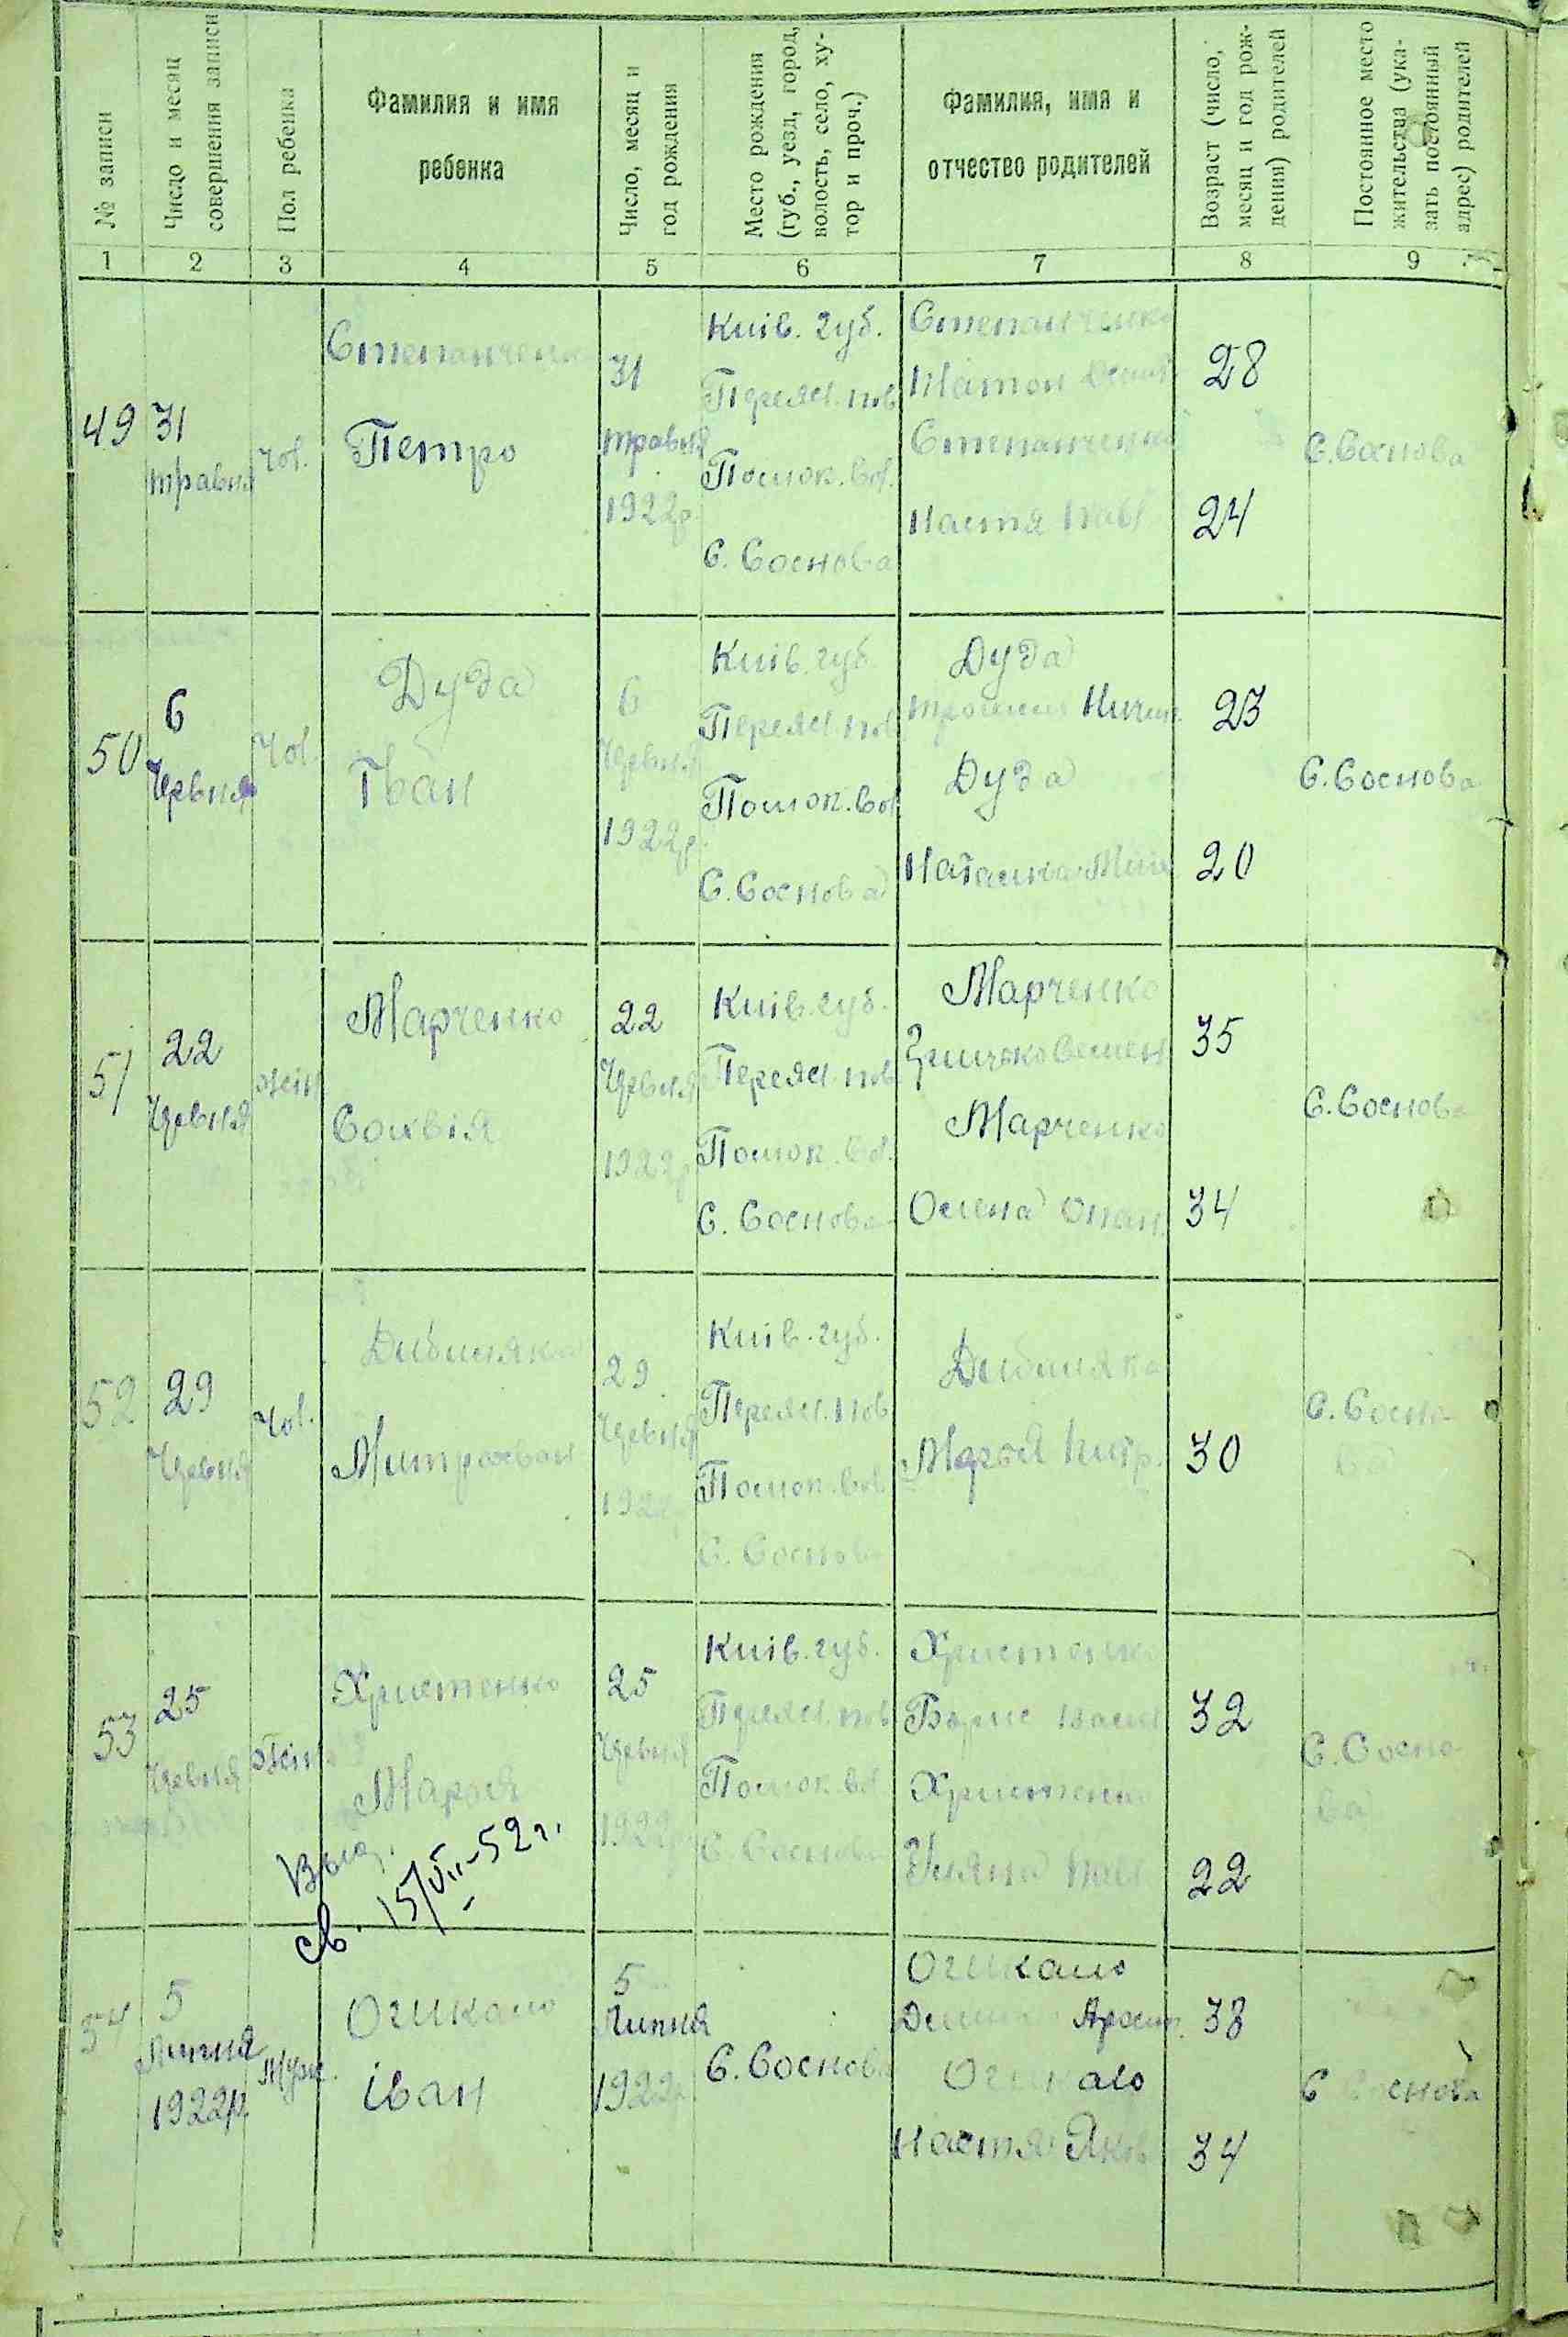 № записи
Число и месяц
совершения записи
Пол ребенка
Фамилия и имя
ребенка
Число, месяц и
год рождения
Место рождения
(губ., уезд, город,
волость, село, ху-
тор и проч.)
Фамилия, имя и
отчество родителей
Возраст (число,
месяц и год рож-
дения) родителей
Постоянное место
жительства (ука-
зать постоянный
адрес) родителей
1
2
3
4
5
6
7
8
9
49
31
травня
чол.
Степанченко
Петро
31
травня
1922р.
Киів. губ.
Переясл. пов
Помок. вол.
С. Соснова
Степанченко
Степанченко
Настя Павл
28
24
С. Соснова
50
6
Червня
чол.
Дуда
Іван
6
Червня
1922р.
Киів. губ.
Переясл. пов
Помок. вол
С. Соснова
Дуда
Ничип.
Дуда
Наталка Мих
23
20
С. Соснова
51
22
Червня
жін
Марченко
Сохвія
22
Червня
1922р
Киів. губ.
Переясл. пов
Помок. вол.
С. Соснова
Марченко
Семен
Марченко
Олена Опан
35
34
С. Соснова
52
29
Червня
чол.
Митрохван
29
Червня
1922
Киів. губ.
Переясл. пов
Помок. вол
С. Соснова
Марья
30
С. Сосно-
ва
53
25
Червня
жін
Христенко
Марья
Выд.
св. 15/VII-52 г.
25
Червня
1922
Киів. губ.
Переясл. пов
Помок. вол
С. Соснова
Христенко
Борис Васил
Христенко
Уляна Павл
32
22
С. Сосно-
ва
54
5
Липня
1922р.
Муж.
Огикало
Іван
5
Липня
1922
С. Соснова
Огикало
Архип.
Огикало
Настя Яков
38
34
С Соснова